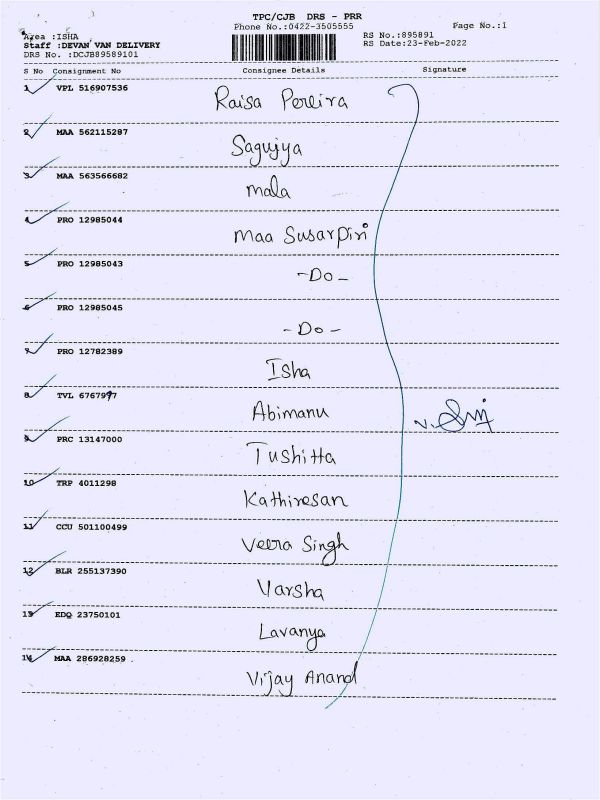 TPC/CJB DRS - PRR
Phone No.:0422-3505555
Page No.:1
Area :ISHA
RS No.:895891
Staff :DEVAN VAN DELIVERY
RS Date:23-Feb-2022
DRS No. :DCJB89589101
S No Consignment No Consignee Details Signature
1 VPL 516907536 Raisa Pereira
2 MAA 562115287 Sagujya
3 MAA 563566682 mala
4 PRO 12985044 Maa Susarpiri
5 PRO 12985043 -Do-
6 PRO 12985045 -Do-
7 PRO 12782389 Isha
8 TVL 6767977 Abimanu
9 PRC 13147000 Tushitta
10 TRP 4011298 Kathiresan
11 CCU 501100499 Veera Singh
12 BLR 255137390 Varsha
13 EDQ 23750101 Lavanya
14 MAA 286928259 Vijay Anand